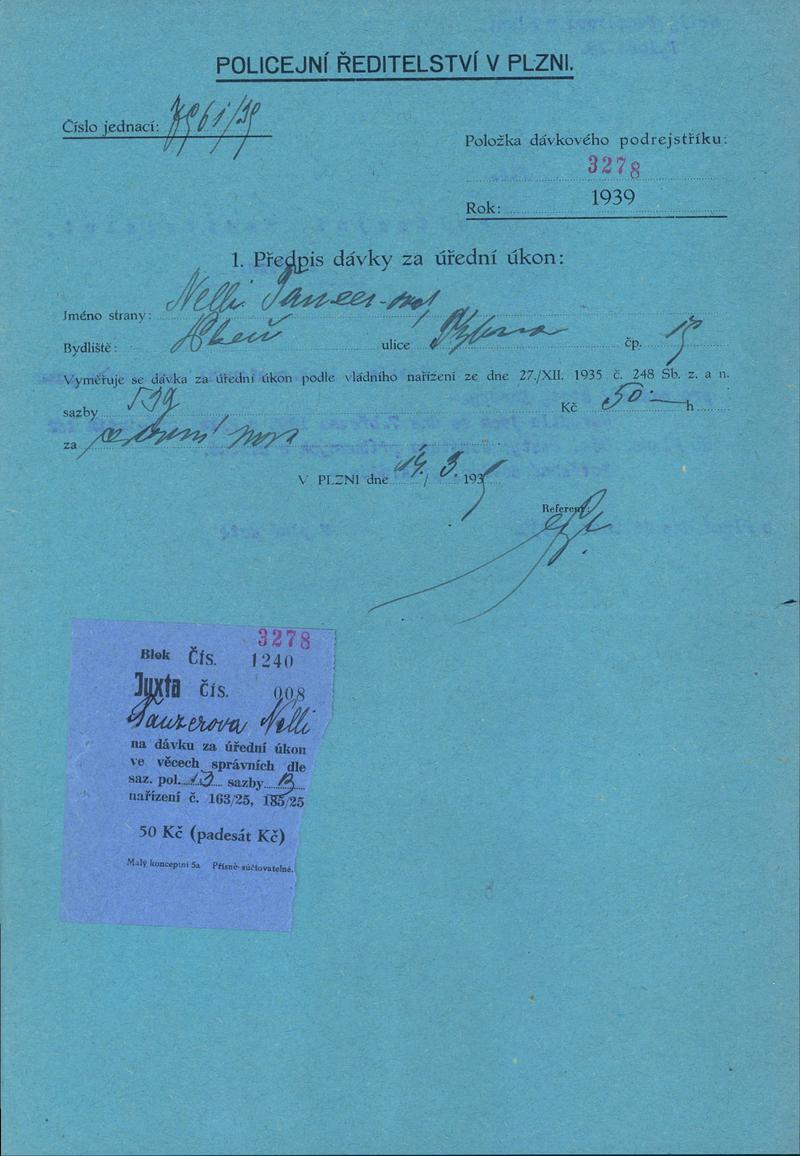 POLICEJNÍ ŘEDITELSTVÍ V PLZNI.
Číslo jednací: 7961/39
Položka dávkového podrejstříku:
3278
Rok: 1939
1. Předpis dávky za úřední úkon:
Jméno strany: Nelli
Bydliště: Plzeň ulice čp. 15
Vyměřuje se dávka za úřední úkon podle vládního nařízení ze dne 27./XII. 1935 č. 248 Sb. z. a n.
sazby Kč 50.— h
za
V PLZNI dne 14/3. 1939
Referent:
3278
Blok Čís. 1240
Juxta Čís. 008
Tauzerova Nelli
na dávku za úřední úkon
ve věcech správních dle
saz. pol. 13 sazby B
nařízení č. 163/25, 185/25
50 Kč (padesát Kč)
Malý konceptní 5a Přísně súčtovatelné.